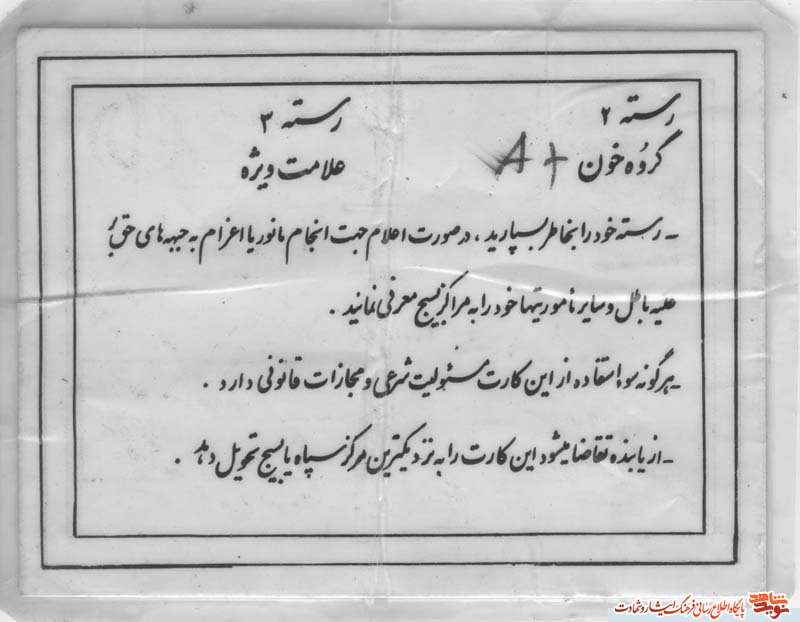 رسته ۲ رسته ۳
گروه خون A+ علامت ویژه
- رسته خود را بخاطر بسپارید ، در صورت اعلام جهت انجام مانور یا اعزام به جبهه های حق بر
علیه باطل و سایر مأموریتها خود را به مراکز بسیج معرفی نمائید .
- هرگونه سوء استفاده از این کارت مسئولیت شرعی و مجازات قانونی دارد .
- از یابنده تقاضا میشود این کارت را به نزدیکترین مرکز سپاه یا بسیج تحویل دهد .
پایگاه اطلاع رسانی فرهنگ ایثار و شهادت
نوید شاهد